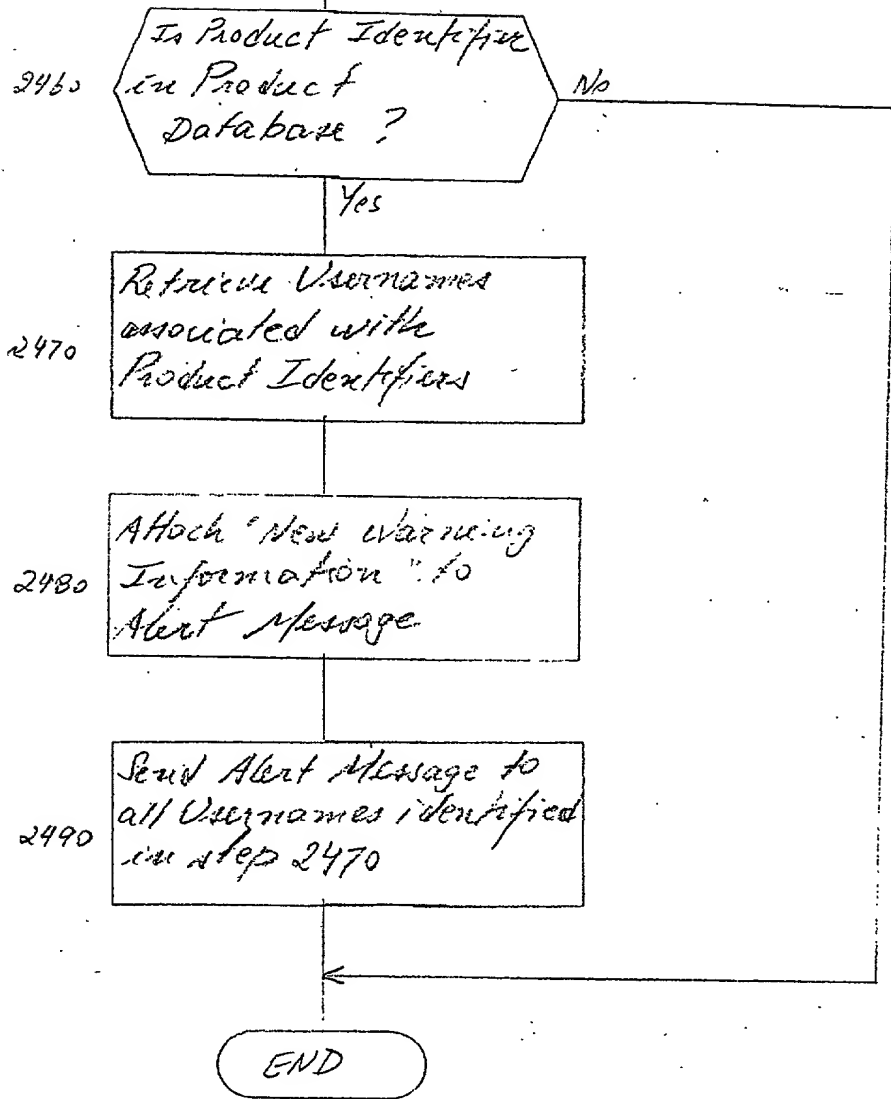 Is Product Identifier
2460
in Product
No
Database ?
Yes
Retrieve Usernames
associated with
2470
Product Identifiers
Attach "New Warning
2480
Information" to
Alert Message
Send Alert Message to
all Usernames identified
2490
in step 2470
END